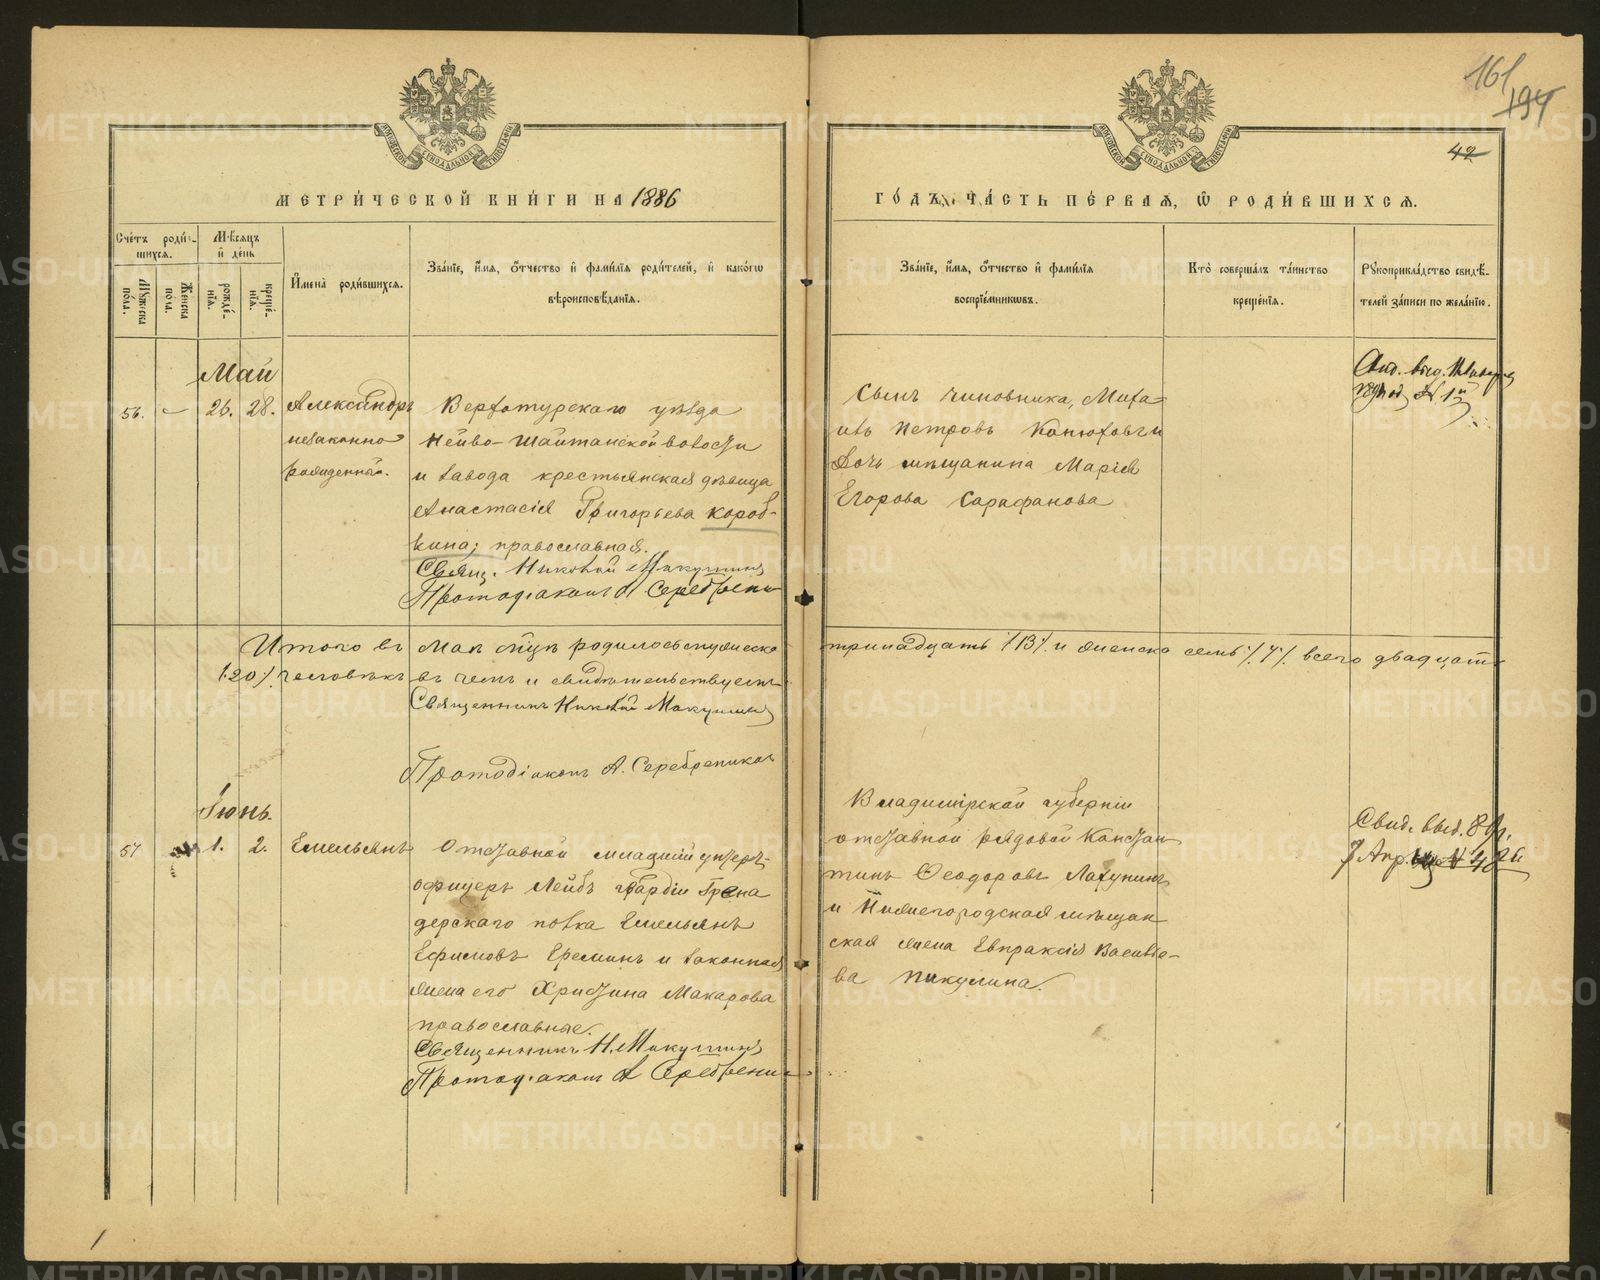 161
194
42
МЕТРИ́ЧЕСКОЙ КНИ́ГИ НА 1886
ГО́ДЪ, ЧА́СТЬ ПЕ́РВАЯ, Ѡ РОДИ́ВШИХСЯ.
Сче́тъ роди́вшихся.
Мѣ́сяцъ и де́нь
Мꙋ́жеска по́ла.
Же́нска по́ла.
рожде́нїя.
креще́нїя.
Имена̀ роди́вшихся.
Зва́нїе, и́мя, ѻ́тчество и фами́лїя роди́телей, и како́гѡ
вѣроисповѣ́данїя.
Зва́нїе, и́мя, ѻ́тчество и фами́лїя
воспрїе́мникѡвъ.
Кто̀ соверша́лъ та́инство
креще́нїя.
Рꙋкоприкла́дство свидѣ́-
телей за́писи по жела́нїю.
Май
56. 26. 28.
Александръ
незаконно
рожденный.
Верхотурскаго уѣзда
Нейво-Шайтанской волости
и завода крестьянская дѣвица
Анастасія Григорьева Короб-
кина; православная.
Свящ. Николай Макушинъ
Протодіаконъ А Серебрени
Сынъ чиновника, Миха-
илъ Петровъ Конюховъ и
дочь мѣщанина Марія
Егорова Сарафанова
Свид. выд.
Итого въ Маѣ мцѣ родилось мужеска тринадцать /13/ и женска семь /7/ всего двадцать
/20/ человѣкъ въ чемъ и свидѣтельствуемъ
Священникъ Николай Макушинъ
Протодіаконъ А. Серебрениковъ
Іюнь.
57 1. 2.
Емельянъ
Отставной младшій унтеръ-
офицеръ Лейбъ Гвардіи Грена
дерскаго полка Емельянъ
Ефимовъ Ереминъ и законная
жена его Христина Макарова
православные.
Священникъ Н. Макушинъ
Протодіаконъ А Серебрени
Владимірской губерніи
отставной рядовой Констан
тинъ Ѳеодоровъ Лахунинъ
и Нижегородская мѣщан
ская жена Евпраксія Василье-
ва Пикулина.
Свид. выд. 89 г.
7 Апр.